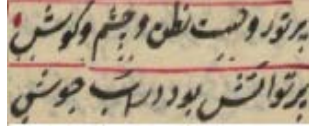 پرتو روحست نطق و چشم و گوش
پرتو آتش بود در آب جوش